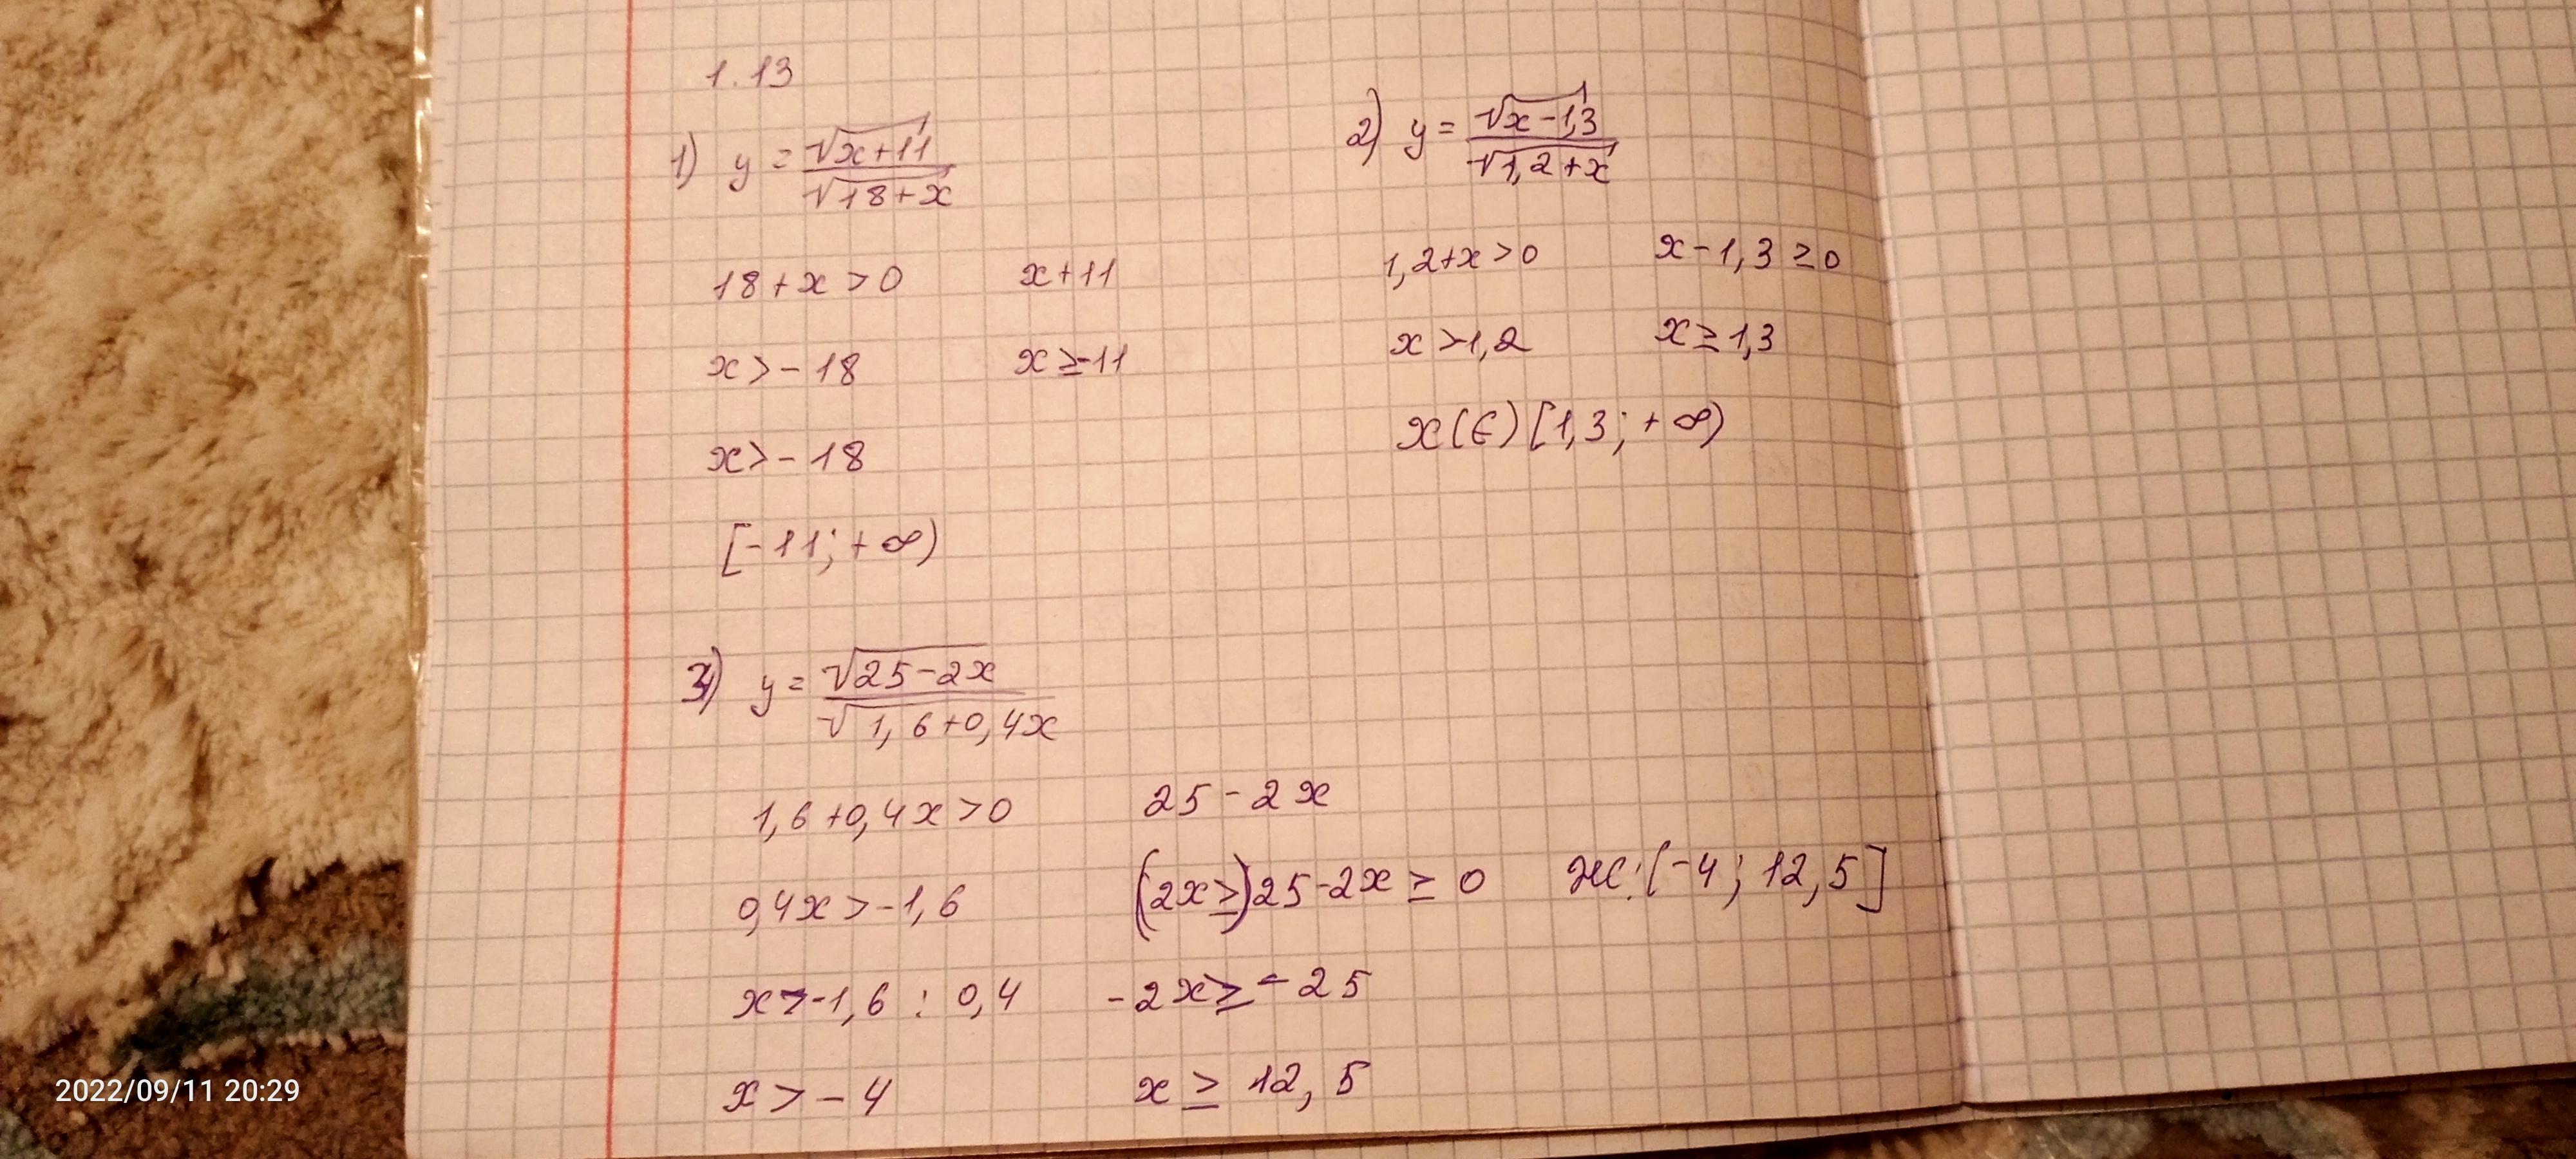 1.13
1) y = √x+11 / √18+x
18+x>0 x+11
x>-18 x≥-11
x>-18
[-11; +∞)
2) y = √x-1,3 / √1,2+x
1,2+x>0 x-1,3≥0
x>-1,2 x≥1,3
x(∈)[1,3; +∞)
3) y = √25-2x / √1,6+0,4x
1,6+0,4x>0 25-2x
0,4x>-1,6 (2x≥)25-2x≥0 Ж:(-4; 12,5]
x>-1,6 : 0,4 -2x≥-25
x>-4 x≥12,5
2022/09/11 20:29